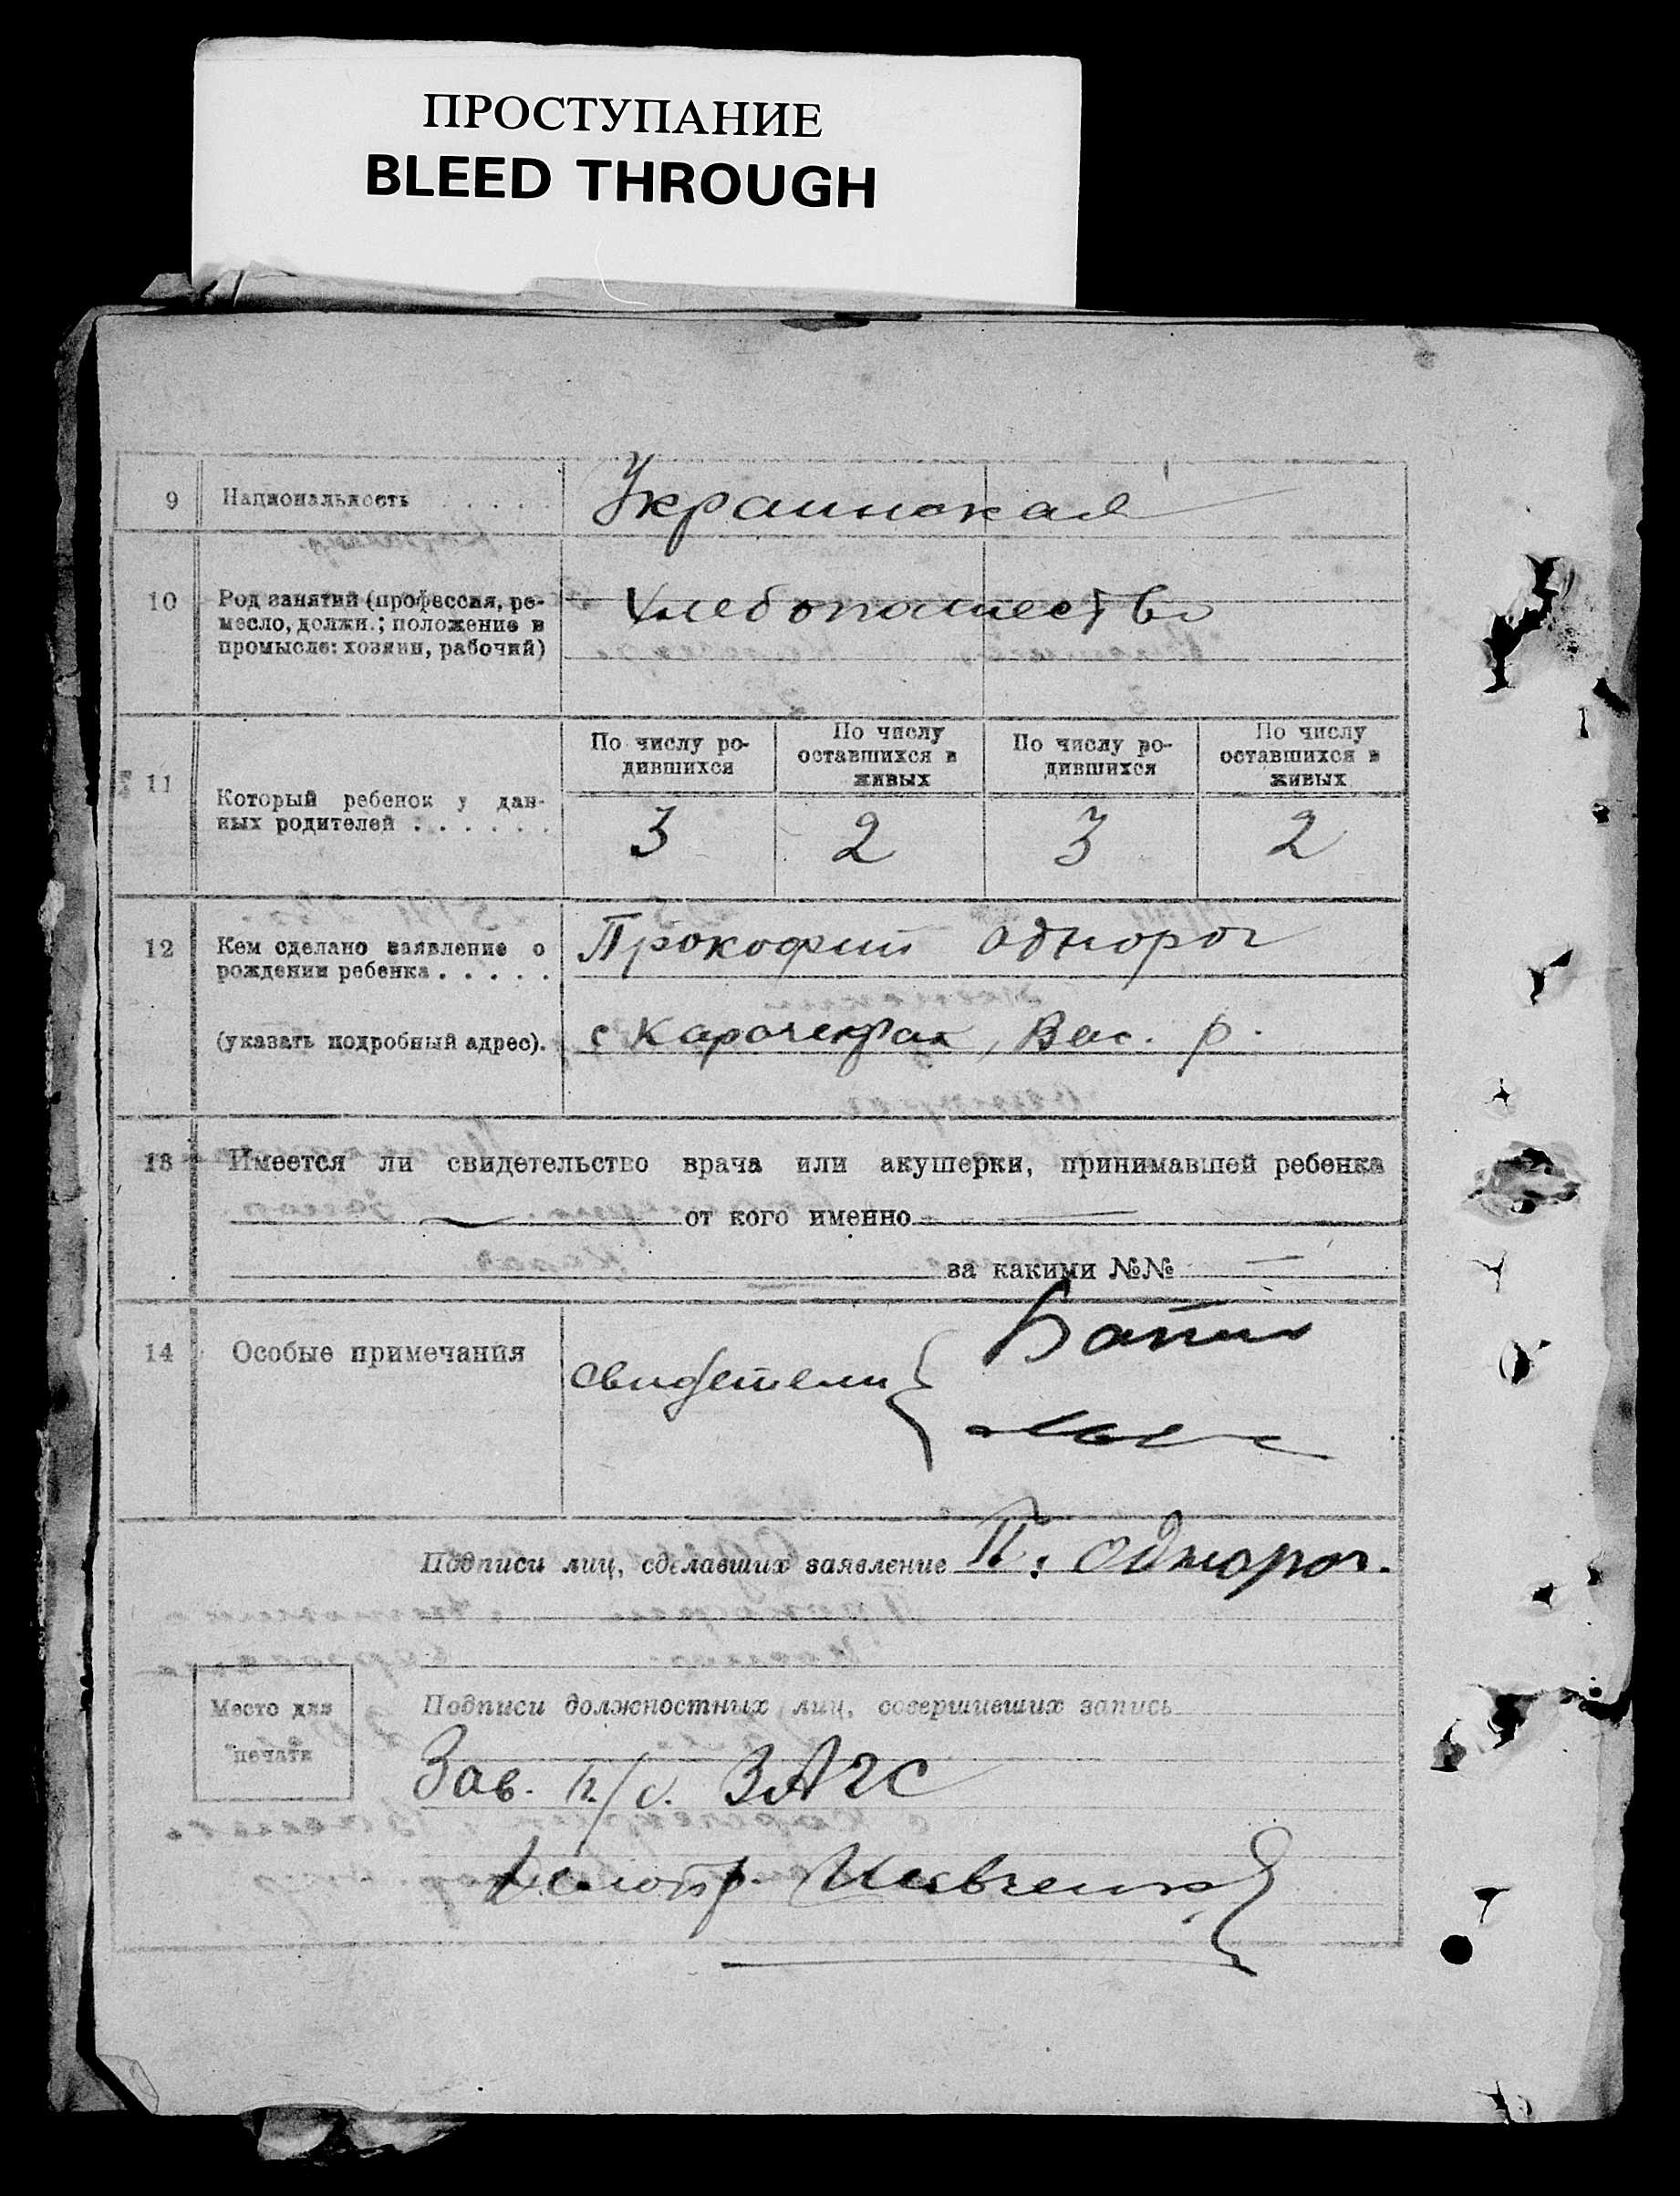 ПРОСТУПАНИЕ
BLEED THROUGH
9 Национальность . . . . . Украинская
10 Род занятий (профессия, ре-
месло, должн.; положение в
промысле: хозяин, рабочий)
Хлебопашество
11 Который ребенок у дан-
ных родителей . . . . . .
По числу ро-
дившихся
По числу
оставшихся в
живых
По числу ро-
дившихся
По числу
оставшихся в
живых
3 2 3 2
12 Кем сделано заявление о
рождении ребенка . . . . .
Прокофий Однорог
(указать подробный адрес).
с Карачекрак, Вас. р.
13 Имеется ли свидетельство врача или акушерки, принимавшей ребенка
от кого именно
за какими №№
14 Особые примечания
свидетели
Подписи лиц, сделавших заявление П. Однорог.
Место для
печати
Подписи должностных лиц, совершивших запись
Зав. п/с. ЗАГС
Шевченко